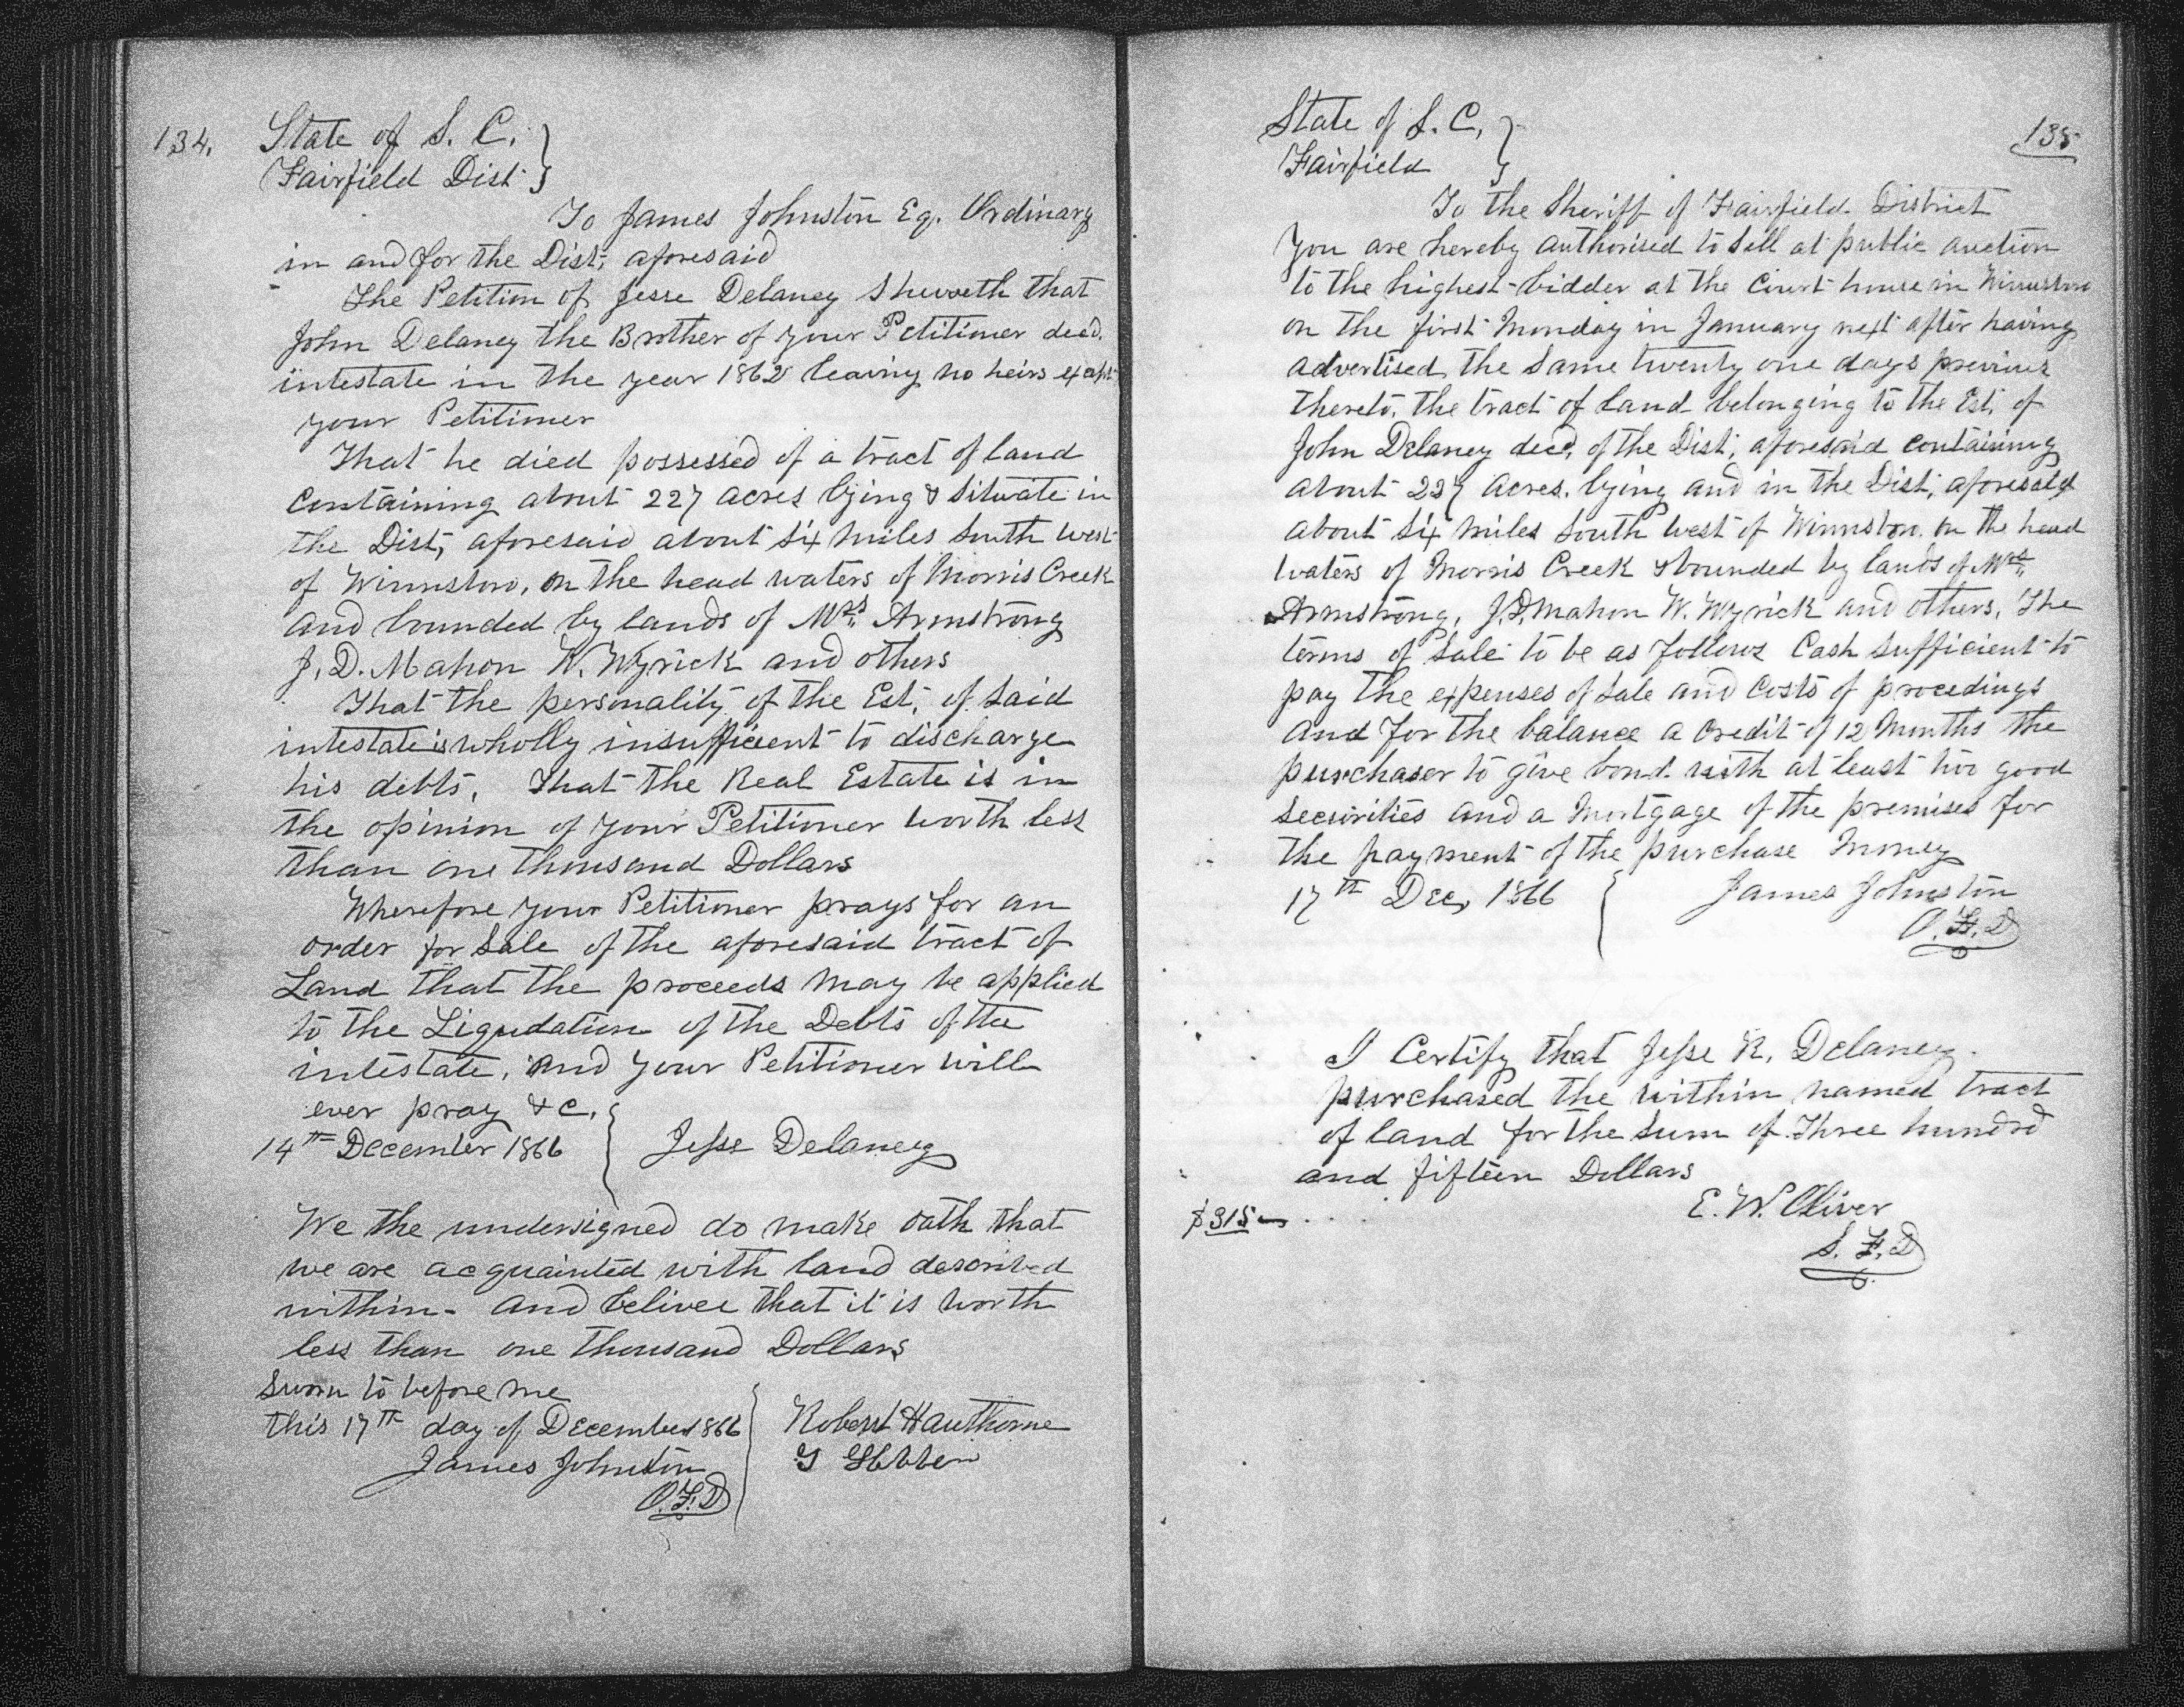 134.
State of S. C. }
Fairfield Dist. }
To James Johnston Eq. Ordinary
in and for the Dist, aforesaid
The Petition of Jesse Delaney Sheweth that
John Delaney the Brother of your Petitioner decd.
intestate in the year 1862 leaving no heirs except
your Petitioner
That he died possessed of a tract of land
Containing about 227 acres lying & Situate in
the Dist, aforesaid about Six miles South west
of Winnsboro, on the head waters of Morris Creek
and bounded by lands of Mrs. Armstrong
J. D. Mahon W. Wyrick and others
That the personality of the Est, of said
intestate is wholly insufficient to discharge
his debts. That the Real Estate is in
the opinion of your Petitioner worth less
than one thousand Dollars
Wherefore your Petitioner prays for an
order for Sale of the aforesaid tract of
Land that the proceeds may be applied
to the Liqudation of the Debts of the
intestate, and your Petitioner will
ever pray &c. {
14th December 1866 { Jesse Delaney
We the undersigned do make oath that
we are acquainted with land described
within - and belivee that it is worth
less than one thousand Dollars
Sworn to before me
this 17th day of December 1866 Robert Hawthorne
James Johnston G
O.F.D
State of S. C, }
135
Fairfield }
To the Sheriff of Fairfield District
You are hereby authorised to sell at public auction
to the highest bidder at the Court house in Winnsboro
on the first Monday in January next after having
advertised the same twenty one days previous
thereto, the tract of land belonging to the Est, of
John Delaney decd, of the Dist, aforesaid containing
about 227 acres, lying and in the Dist, aforesaid
about Six miles South west of Winnsboro on the head
waters of Morris Creek & bounded by lands of Mrs.
Armstrong, J.D. Mahon W. Wyrick and others, The
terms of sale to be as follows Cash sufficient to
pay the expenses of sale and Costs of procedings
and for the balance a credit of 12 Months the
purchaser to give bond with at least two good
securities and a Mortgage of the premises for
the payment of the purchase Money
17th Dec, 1866 { James Johnston
O.F.D
I Certify that Jesse R. Delaney
purchased the within named tract
of land for the sum of Three hundrd
and fifteen Dollars
E. W. Oliver
$315
S. F. D